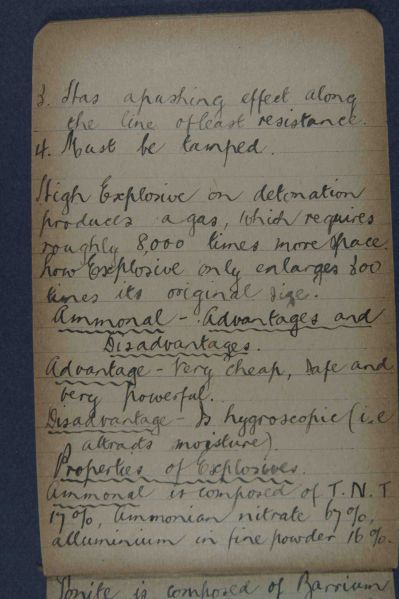 3. Has a pushing effect along
the line of least resistance.
4. Must be tamped.
High Explosive on detonation
produces a gas, which requires
roughly 8,000 times more space.
Low Explosive only enlarges 800
times its original size.
Ammonal - Advantages and
Disadvantages.
Advantage - Very cheap, safe and
very powerful.
Disadvantage - Is hygroscopic (i.e
attracts moisture).
Properties of Explosives.
Ammonal is composed of T.N.T
17%, Ammonian nitrate 67%,
alluminium in fine powder 16%.
Tonite is composed of Barrium